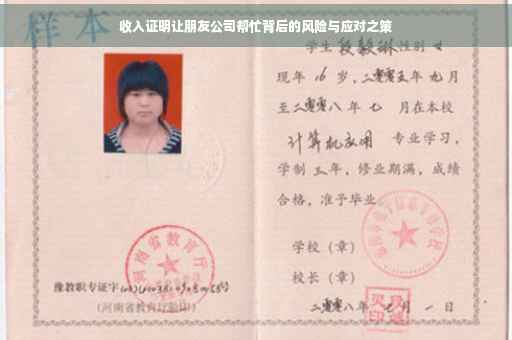 收入证明让朋友公司帮忙背后的风险与应对之策
样本
学生段毅琳性别女
现年16岁，二零零五年九月
至二零零八年七月在本校
计算机应用 专业学习，
学制三年，修业期满，成绩
合格，准予毕业。
学校（章）
校长（章）
二零零八年 月一日
河南省教育厅
豫教职专证字
（河南省教育厅验印）